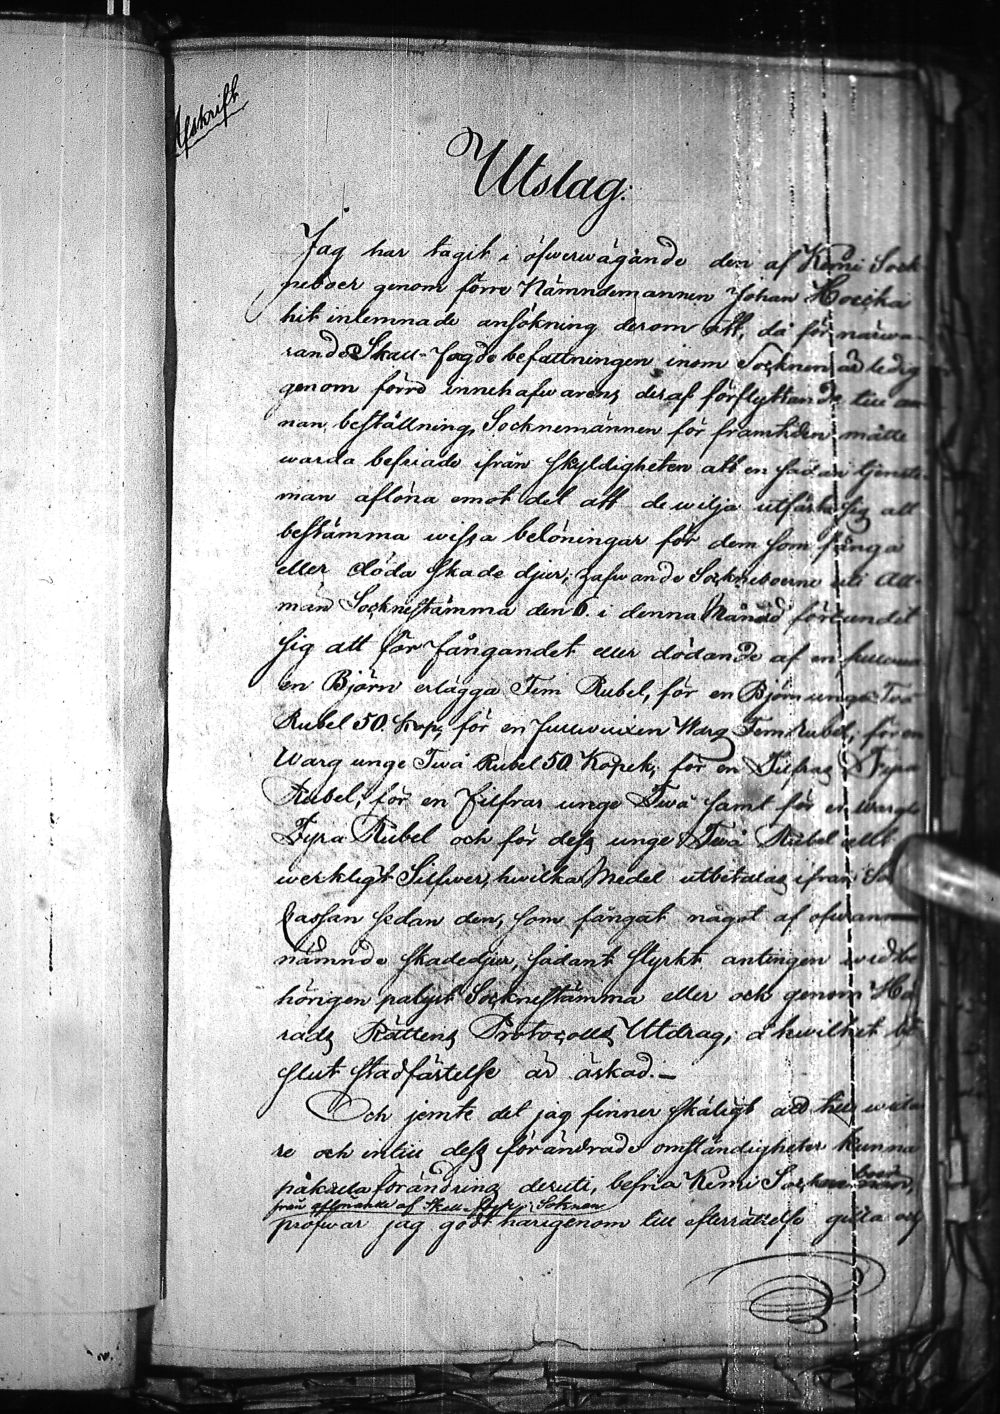 Afskrift
Utslag:
Jag har tagit i öfwerwägande den af Kemi Sock-
neboer genom förre Nämndemannen Johan
hit inlemnade ansökning derom att, då för närwa-
rande Skall-Fogdebefattningen inom Socknen är ledig
genom förra innehafwarens deraf förflyttande till an-
nan beställning, Socknemännen för framtiden måtte
warda befriade ifrån skyldigheten att en sådan tjenste-
man aflöna emot det att de wilja utfästa sig att
bestämma wissa belöningar för dem som fånga
eller döda skade djur; hafwande Sockneboerne uti All-
män Socknestämma den 6. i denna Månad förbundet
sig att för fångandet eller dödande af en fullwux-
en Björn erlägga Fem Rubel, för en Björnunge Två
Rubel 50. Kop, för en fullwuxen Warg Fem Rubel, för en
Warg unge Twå Rubel 50 Kopek; för en Filfras Fyra
Rubel; för en Filfras unge Twå samt för en warglo
Fyra Rubel och för dess unge Twå Rubel allt
werkligt Silfwer, hwilka Medel utbetalas ifrån
Cassan sedan den, som fångat något af ofwann-
nämnde skadedjur, sådant styrkt antingen wid be-
hörigen pålyst Socknestämma eller och genom Hä-
rads Rättens Protocolls Utdrag; å hwilket be-
slut stadfästelse är äskad.—
Och jemte det jag finner skäligt att till widа-
re och intill dess förändrade omständigheter kunna
påkalla förändring deruti, befria Kemi Sockneboer
från aflönande af Skall-Fogde i Soknen
pröfwar jag godt härigenom till efterrättelse gilla och